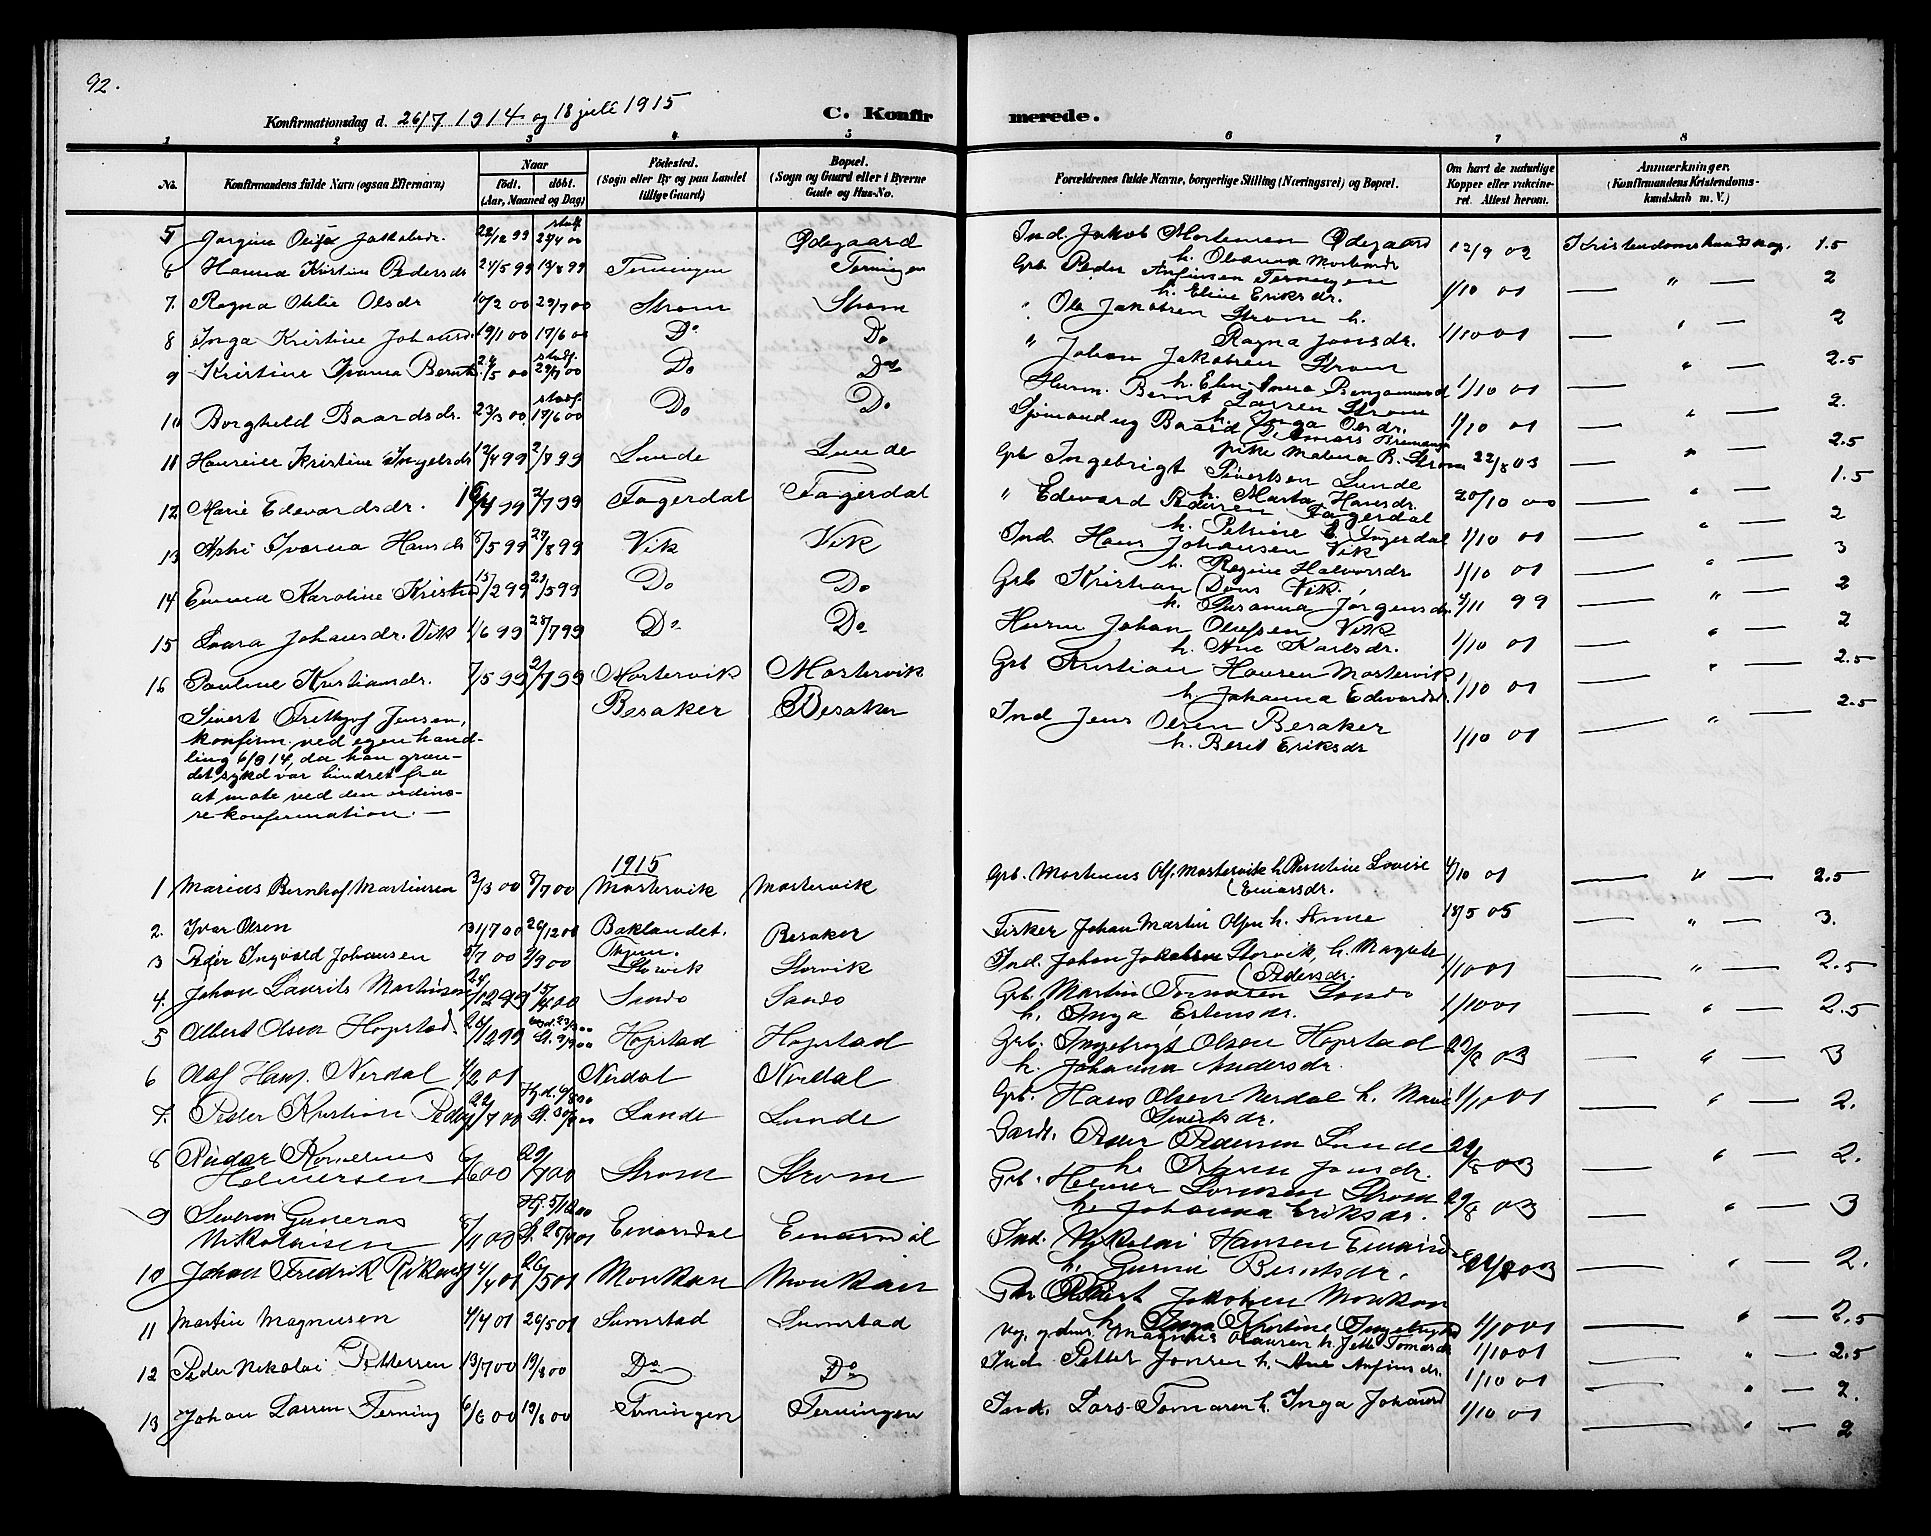 92.
Konfirmationsdag d. 26/7 1914 og 18 juli 1915
C. Konfirmerede.
1 2 3 4 5 6 7 8
No.
Konfirmandens fulde Navn (ogsaa Efternavn)
Naar
født. døbt.
(Aar, Maaned og Dag)
Fødested.
(Sogn eller By og paa Landet
tillige Gaard)
Bopæl.
(Sogn og Gaard eller i Byerne
Gade og Hus-No.
Forældrenes fulde Navne, borgerlige Stilling (Næringsvei) og Bopæl.
Om havt de naturlige
Kopper eller vakcine-
ret. Attest herom.
Anmærkninger.
(Konfirmandens Kristendoms-
kundskab m. V.)
5 Jakobsdr. 28/12 99 29/4 00 Ødegaard Ind. Jakob Mortensen Ødegaard 12/9 02 Kristendomskundskap. 1.5
6 Hanna Kristine Pedersdr 24/5 99 13/8 99 Terningen Terningen Grb Peder Anfinsen Terningen
h. Eline Eriksdr. 1/10 01 — " — 2
7. Ragna Otilie Olsdr 10/2 00 29/7 00 Strøm Strøm " Ole Jakobsen Strøm h.
Ragna Jonsdr. 1/10 01 — " — 2
8 Inga Kristine Johansd. 19/1 00 17/6 00 Do Do " Johan Jakobsen Strøm
h. Elen Anna Benjaminsd 1/10 01 — " — 2.5
9 Kristine Ivarna Berntsd. 24/5 00 29/7 00 Do Do Husm. Bernt Larsen Strøm
h. Inga Olsdr. 1/10 01 — " — 2.
10 Borghild Baardsdr. 23/3 00 17/6 00 Do Do Baard
pike Malena B. Strøm 22/8 03 — " — 2.5
11 Kristine Ingebrdr 12/4 99 2/8 99 Lunde Lunde Grb Ingebrigt Sivertsen Lunde
h. Marta Hansdr. 20/10 00 — " — 1.5
12 Marie Edevardsdr. 16/4 99 2/7 99 Fagerdal Fagerdal " Edevard Pedersen Fagerdal
h. Petrine 1/10 01 — " — 2
13 Ivarna Hansdr 8/5 99 27/8 99 Vik Vik Ind. Hans Johansen Vik
h. Regine Halvorsdr 1/10 01 — " — 3
14 Emma Karoline Kristd 15/2 99 21/5 99 Do Do Grb Kristian Døns Vik.
h. Susanna Jørgensdr. 4/11 99 — " — 2
15 Laura Johansdr. Vik 1/6 99 28/7 99 Do Do Husm Johan Olufsen Vik
h. Ane Karlsdr. 1/10 01 — " — 2
16 Pauline Kristiansdr. 7/5 99 2/7 99 Mostervik Mostervik Grb Kristian Hansen Mostervik
h. Johanna Edevardsd. 1/10 01 — " — 2.5
Sivert Frethjof Jensen, Besaker Besaker Ind Jens Olsen Besaker
h. Beret Eriksdr 1/10 01 — " — 2.5
konfirm. ved egen hand-
ling 6/9 14, da han grun-
det sykd var hindret fra
at møte ved den ordinæ-
re konfirmation. —
1915
1 Marius Bernhof Martinsen 3/3 00 8/7 00 Mostervik Mostervik Grb. Martinus Olf. Mostervik h. Lovise
Einarsdr. 4/10 01 — " — 2.5
2. Ivar Olsen 31/7 00 26/12 00 Baklandet, Besaker Fisker Johan Martin Olsen h. Anne 18/5 05 — " — 3.
3 Peder Ingvald Johansen 5/7 00 2/9 00 Storvik Storvik Ind. Johan Jakobsen Storvik, h. Magrete
Pedersdr. 1/10 01 — " — 2.5
4. Johan Laurits Martinsen 24/12 99 15/4 00 Sandø Sandø Grb. Martin Tomasen Sandø
h. Inga Erlensdr. 1/10 01 — " — 2.5
5 Albert Olsen Hopstad 26/12 99 Hopstad Hopstad Grb. Ingebrigt Olsen Hopstad
h. Johanna Andersdr. 22/8 03 — " — 3
6 Olaf Hans. Nerdal 1/2 01 Nerdal Nerdal Grb. Hans Olsen Nerdal h. Marie
Sivertsdr. 1/10 01 — " — 2.
7. Peder Kristian Peders 22/7 00 Hjd. 6/8 00 Lunde Lunde Gardb. Peder Pedersen Lunde
h. Jonsdr. 22/8 03 — " — 2.
8 Peder Kornelius
Helmersen 6/6 00 29/7 00 Strøm Strøm Grb. Helmer Lorensen Strøm
h. Johanna Eriksdr. 29/8 03 — " — 3
9 Severin Gunerus
Nikolaisen 8/11 00 Hj. 5/12 00 Einarsdal Einarsdal Ind. Nikolai Hansen Einarsda
h. Gurine Berntsdr. 22/8 03 — " — 2.
10 Johan Fredrik Rikards 4/4 01 26/5 01 Monkan Monkan Grb Rikart Jakobsen Monkan
h. Inga Kristine Ingebrigtsd 1/10 01 — " — 2.5
11 Martin Magnusen 4/4 01 26/5 01 Sumstad Sumstad Magnus Hansen h. Jette Tomasdr 1/10 01 — " — 2.5
12 Peder Nikolai Pettersen 13/7 00 19/8 00 Do Do Ind. Petter Jonsen h. Ane Anfinsdr. 1/10 01 — " — 2.
13 Johan Larsen Terning 6/6 00 19/8 00 Terningen Terningen Ind. Lars Tomasen h. Inga Johansd 1/10 01 — " — 2